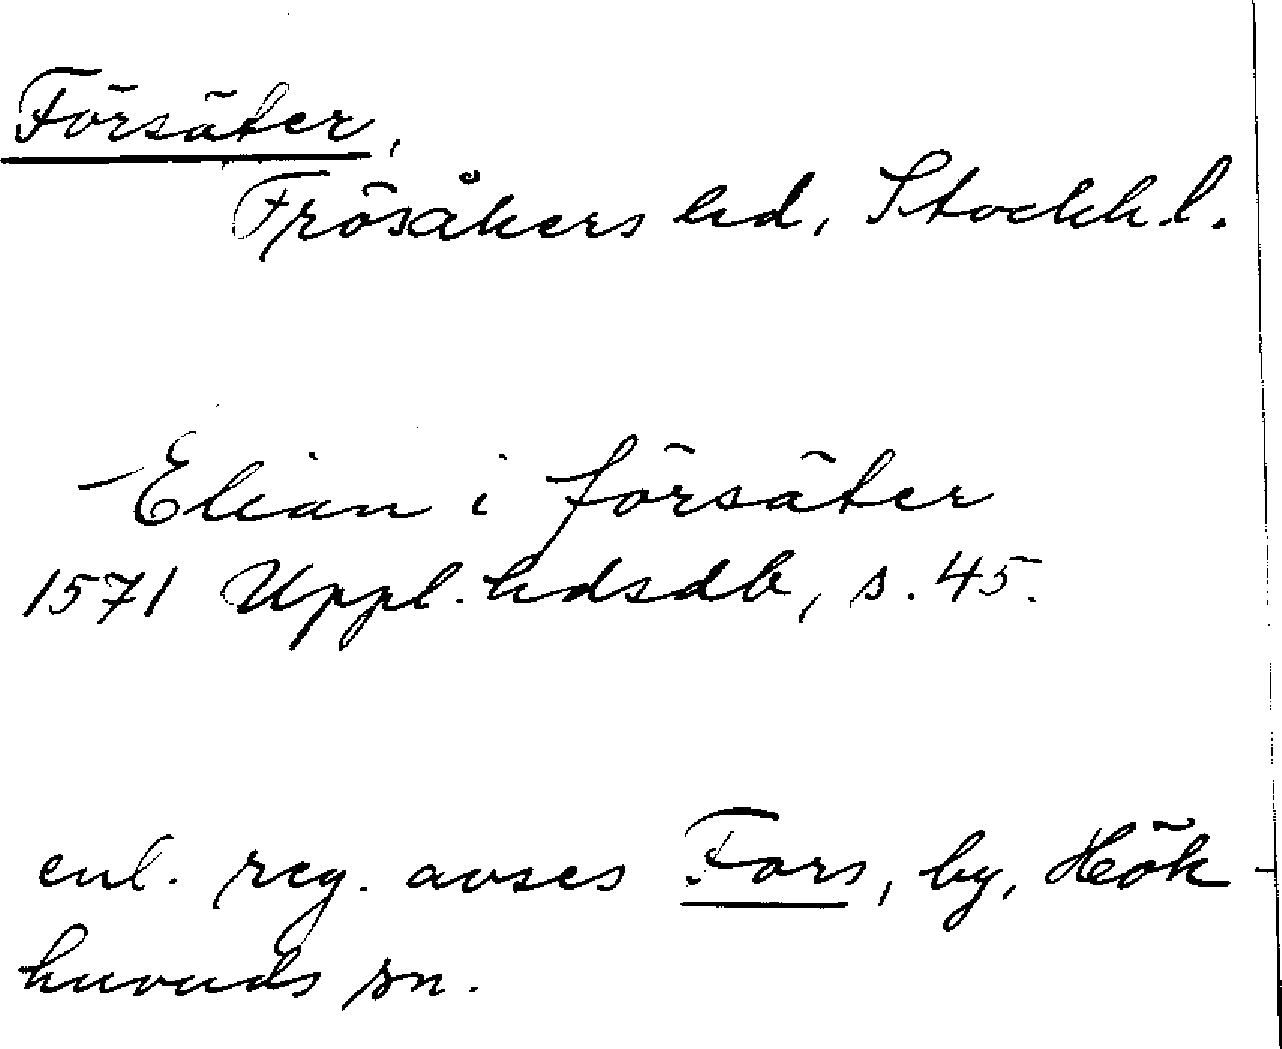 Försäter,
Frösåkers hd, Stockh.l.
Elian i försäter
1571 Uppl. hdsdb, s. 45.
enl. reg. avses Fors, by, Hök-
huvuds sn.